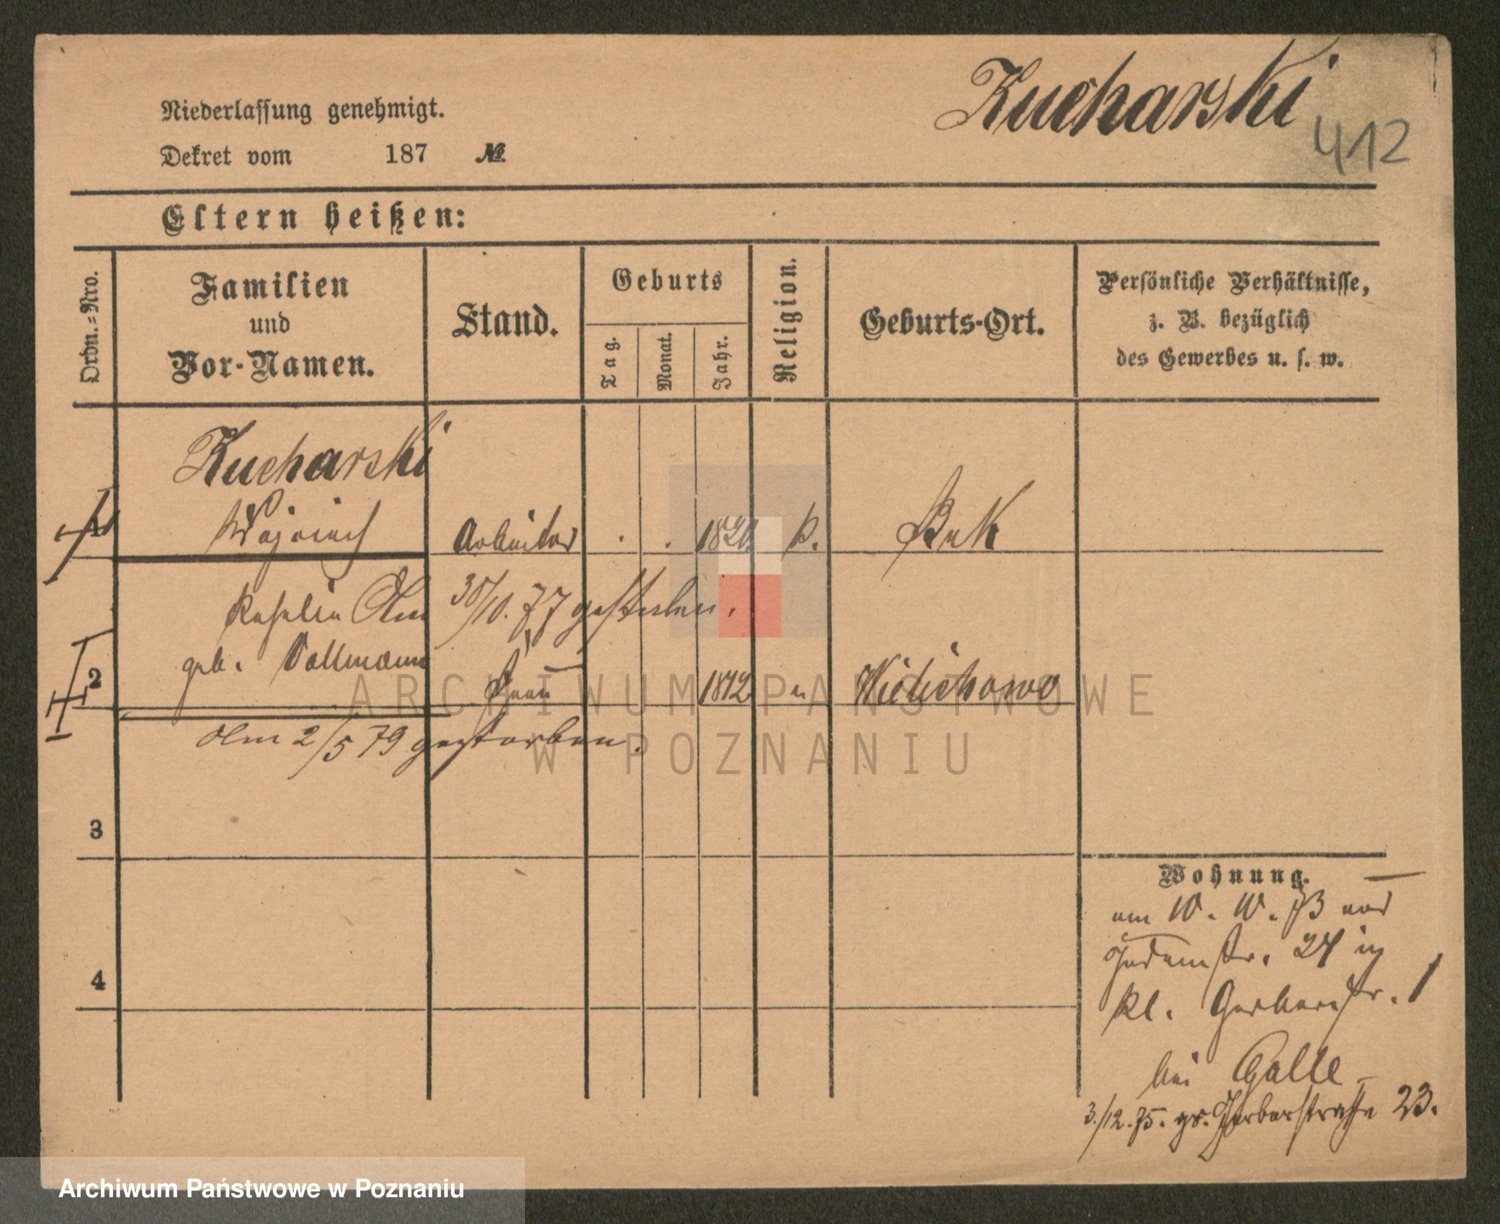 Kucharski
412
Niederlassung genehmigt.
Dekret vom 187 №
Eltern heißen:
Ordn.-Nro.
Familien
und
Vor-Namen.
Stand.
Geburts
Tag.
Monat.
Jahr.
Religion.
Geburts-Ort.
Persönliche Verhältnisse,
z. B. bezüglich
des Gewerbes u. s. w.
Kucharski
1 Wojciech Arbeiter . . p. Buk
Am 30/10. 77 gestorben.
geb. Vollmann
2 Frau 1812 " Wielichowo
Am 2/5 79 gestorben.
3
4
Wohnung.
am 10. 10. 73 von
Judenstr. 27 in
kl. Gerberstr. 1
bei Galle
3./12.75. gr. Gerberstraße 23.
ARCHIWUM PAŃSTWOWE
W POZNANIU
Archiwum Państwowe w Poznaniu